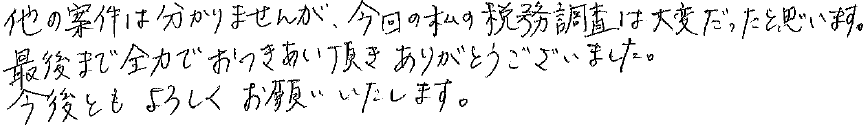 他の案件は分かりませんが、今回の私の税務調査は大変だったと思います。
最後まで全力でおつきあい頂きありがとうございました。
今後ともよろしくお願いいたします。